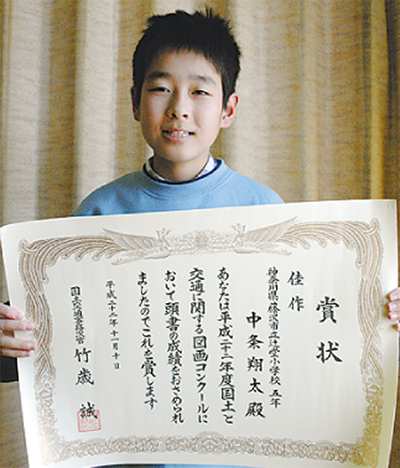 賞状
佳作
神奈川県藤沢市立辻堂小学校 五年
中条翔太殿
あなたは平成二十二年度国土と
交通に関する図画コンクールに
おいて頭書の成績をおさめられ
ましたのでこれを賞します
平成二十二年十一月十日
国土交通事務次官 竹歳 誠